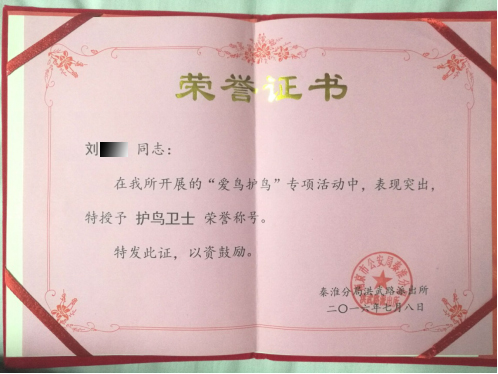 荣誉证书
刘 同志：
在我所开展的“爱鸟护鸟”专项活动中，表现突出，
特授予 护鸟卫士 荣誉称号。
特发此证，以资鼓励。
秦淮分局洪武路派出所
二〇一六年七月八日